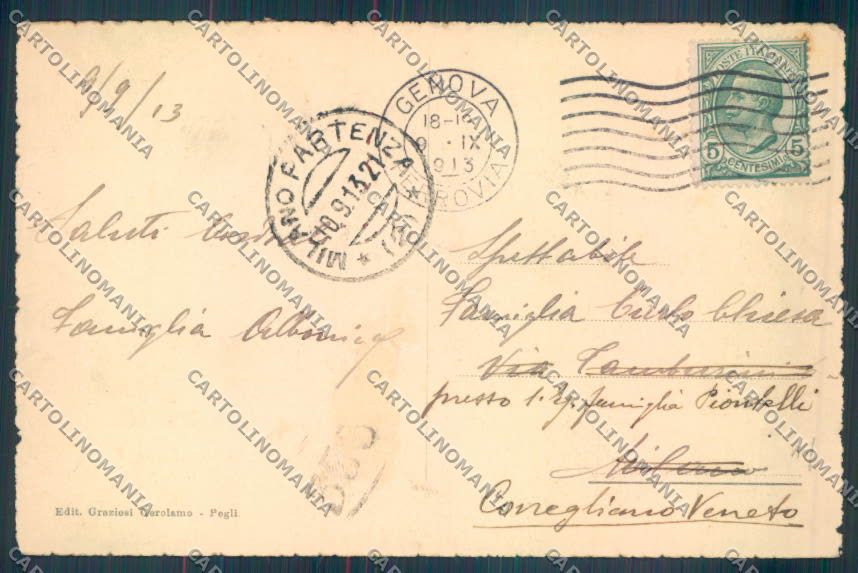 9/9/13
GENOVA
18-1
9 . IX
913
ROVIA
MILANO PARTENZA
10.9.13.21
POSTE ITALIANE
5 5
CENTESIMI
Saluti
Famiglia
Spettabile
Famiglia Carlo Chiesa
Via Tamburini
presso famiglia Piontelli
Milano
Conegliano Veneto
Edit. Graziosi Gerolamo - Pegli
CARTOLINOMANIA